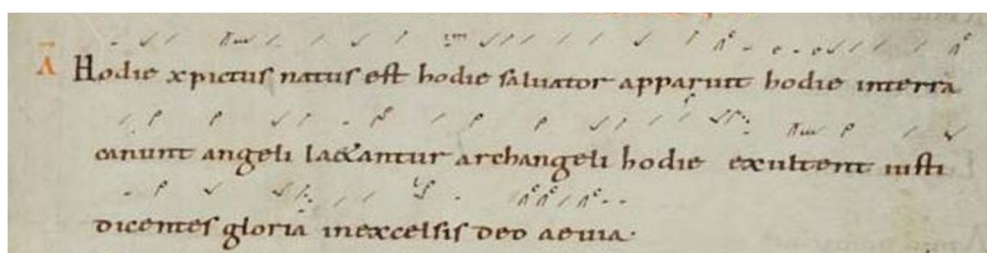 A Hodie xpictus natus est hodie saluator apparuit hodie interra
canunt angeli laetantur archangeli hodie exultent iusti
dicentes gloria inexcelsis deo aeuia.